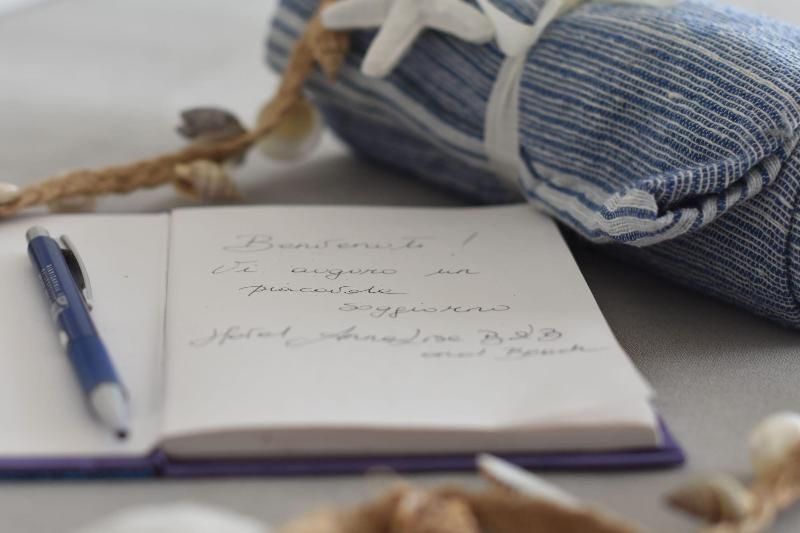 Benvenuti!
Vi auguro un
piacevole
soggiorno
Hotel AnnaLisa B&B
and Beach